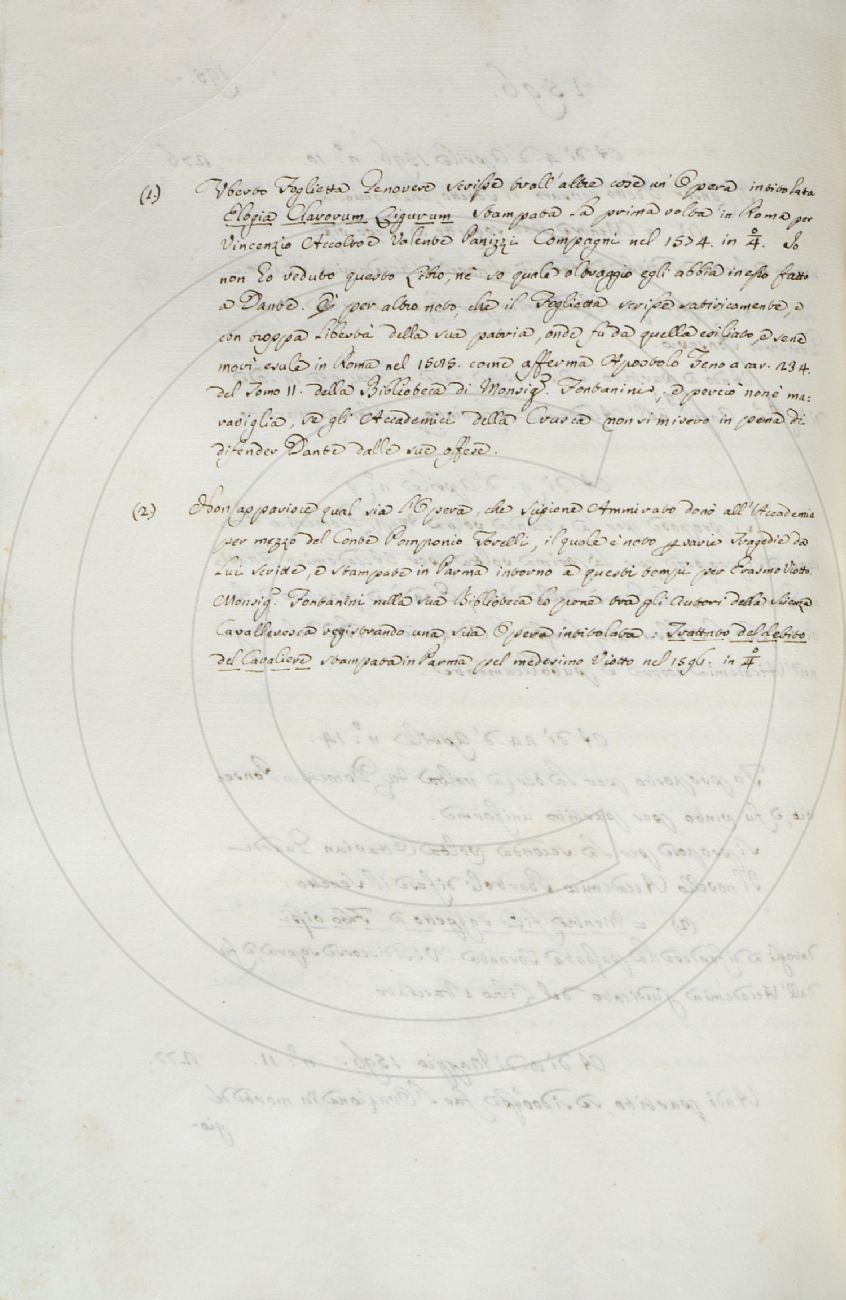 (1.) Uberto Foglietta Genovese scrisse trall'altre cose un'Opera intitolata
Elogia Clarorum Ligurum stampata la prima volta in Roma per
Vincenzio Accolto e Valente Panizzi Compagni nel 1574. in 4°. Io
non ho veduto questo Libro, nè so quale oltraggio egli abbia in esso fatto
a Dante. È per altro noto, che il Foglietta scrisse satiricamente, e
con troppa libertà della sua patria, onde fu da quella esiliato, e sene
morì esule in Roma nel 1581. come afferma Apostolo Zeno a car. 234.
del Tomo II. della Biblioteca di Monsig.r Fontanini, e perciò non è ma:
raviglia, se gli Accademici della Crusca non si misero in pena di
difender Dante dalle sue offese.
(2.) Non apparisce qual sia l'Opera, che Scipione Ammirato donò all'Accademia
per mezzo del Conte Pomponio Torelli, il quale è noto p varie Tragedie da
Lui scritte, e stampate in Parma intorno a questi tempi per Erasmo Viotto.
Monsig.r Fontanini nella sua Biblioteca lo pone tra gli Autori della Scienza
Cavalleresca registrando una sua Opera intitolata: Trattato del debito
del Cavaliere stampata in Parma pel medesimo Viotto nel 1596. in 4°.